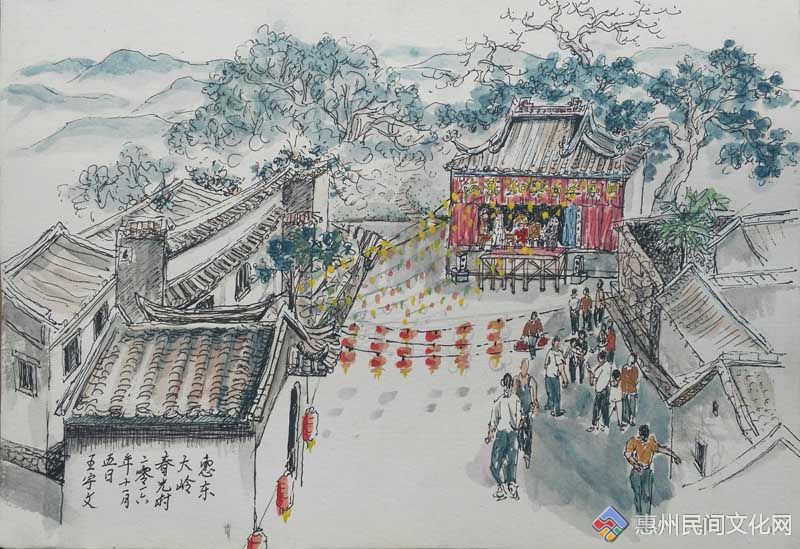 惠东
大岭
春光村
二零一六
年十一月
五日
王宇文
惠州民间文化网